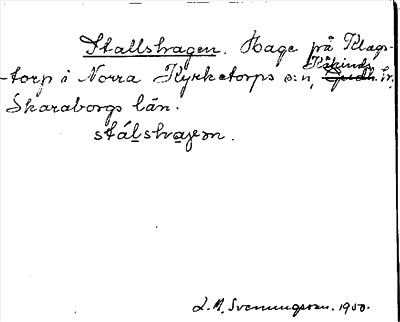 Stallshagen. Hage på Klags-
-torp i Norra Kyrketorps s:n, Kåkinds hr,
Skaraborgs län.
stálshagen.
L. M. Svenungsson. 1950.